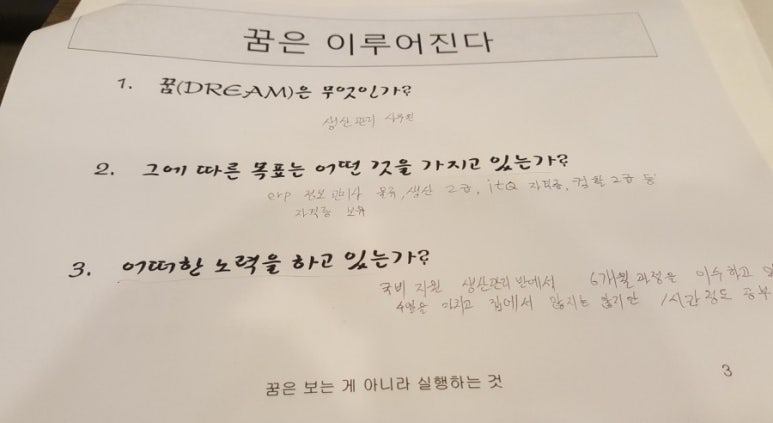 꿈은 이루어진다
1. 꿈(DREAM)은 무엇인가?
생산관리 사무원
2. 그에 따른 목표는 어떤 것을 가지고 있는가?
erp 정보 관리사 물류, 생산 2급, itQ 자격증, 컴활 2급 등
자격증 보유
3. 어떠한 노력을 하고 있는가?
국비 지원 생산관리 반에서 6개월 과정을 이수하고
수업을 마치고 집에서 많지는 않지만 1시간 정도 공부
꿈은 보는 게 아니라 실행하는 것
3